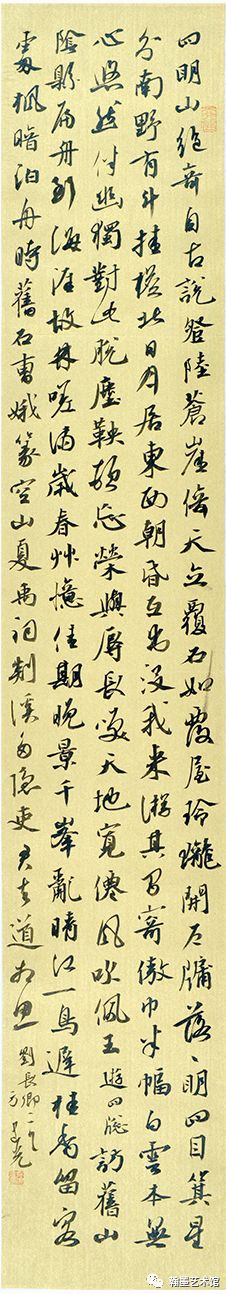 四明山絶奇自古說登陸蒼崖倚天立覆石如覆屋玲瓏開户牖落〻明四目箕星
分南野有斗挂檐北日月居東西朝昏互出没我来游其間寄傲巾半幅白雲本無
心悠然付幽獨對此脫塵鞅頓忘榮與辱長笑天地寬僊風吹佩玉 遊四窗 訪舊山
陰縣扁舟到海涯故林嗟滿歲春艸憶佳期晚景千峯亂晴江一鳥遲桂香留客
處楓暗泊舟時舊石曹娥篆空山夏禹祠剡溪多隱吏君去道相思 劉長卿二首
瀚墨艺术馆